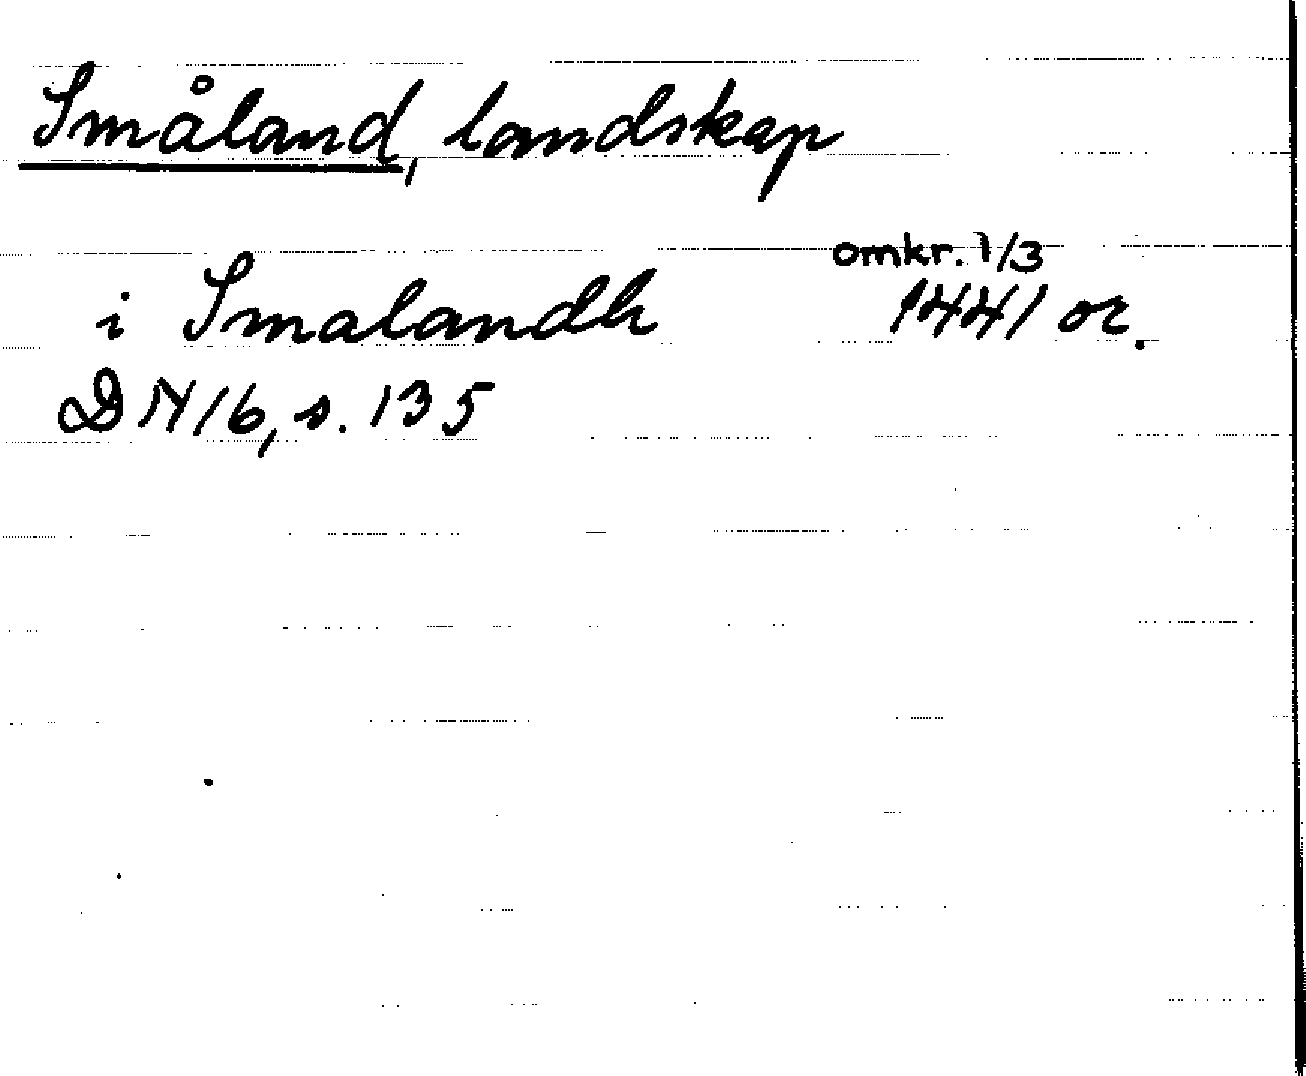 Småland, landskap
omkr. 1/3
i Smalandh 1441 or.
DN 16, s. 135